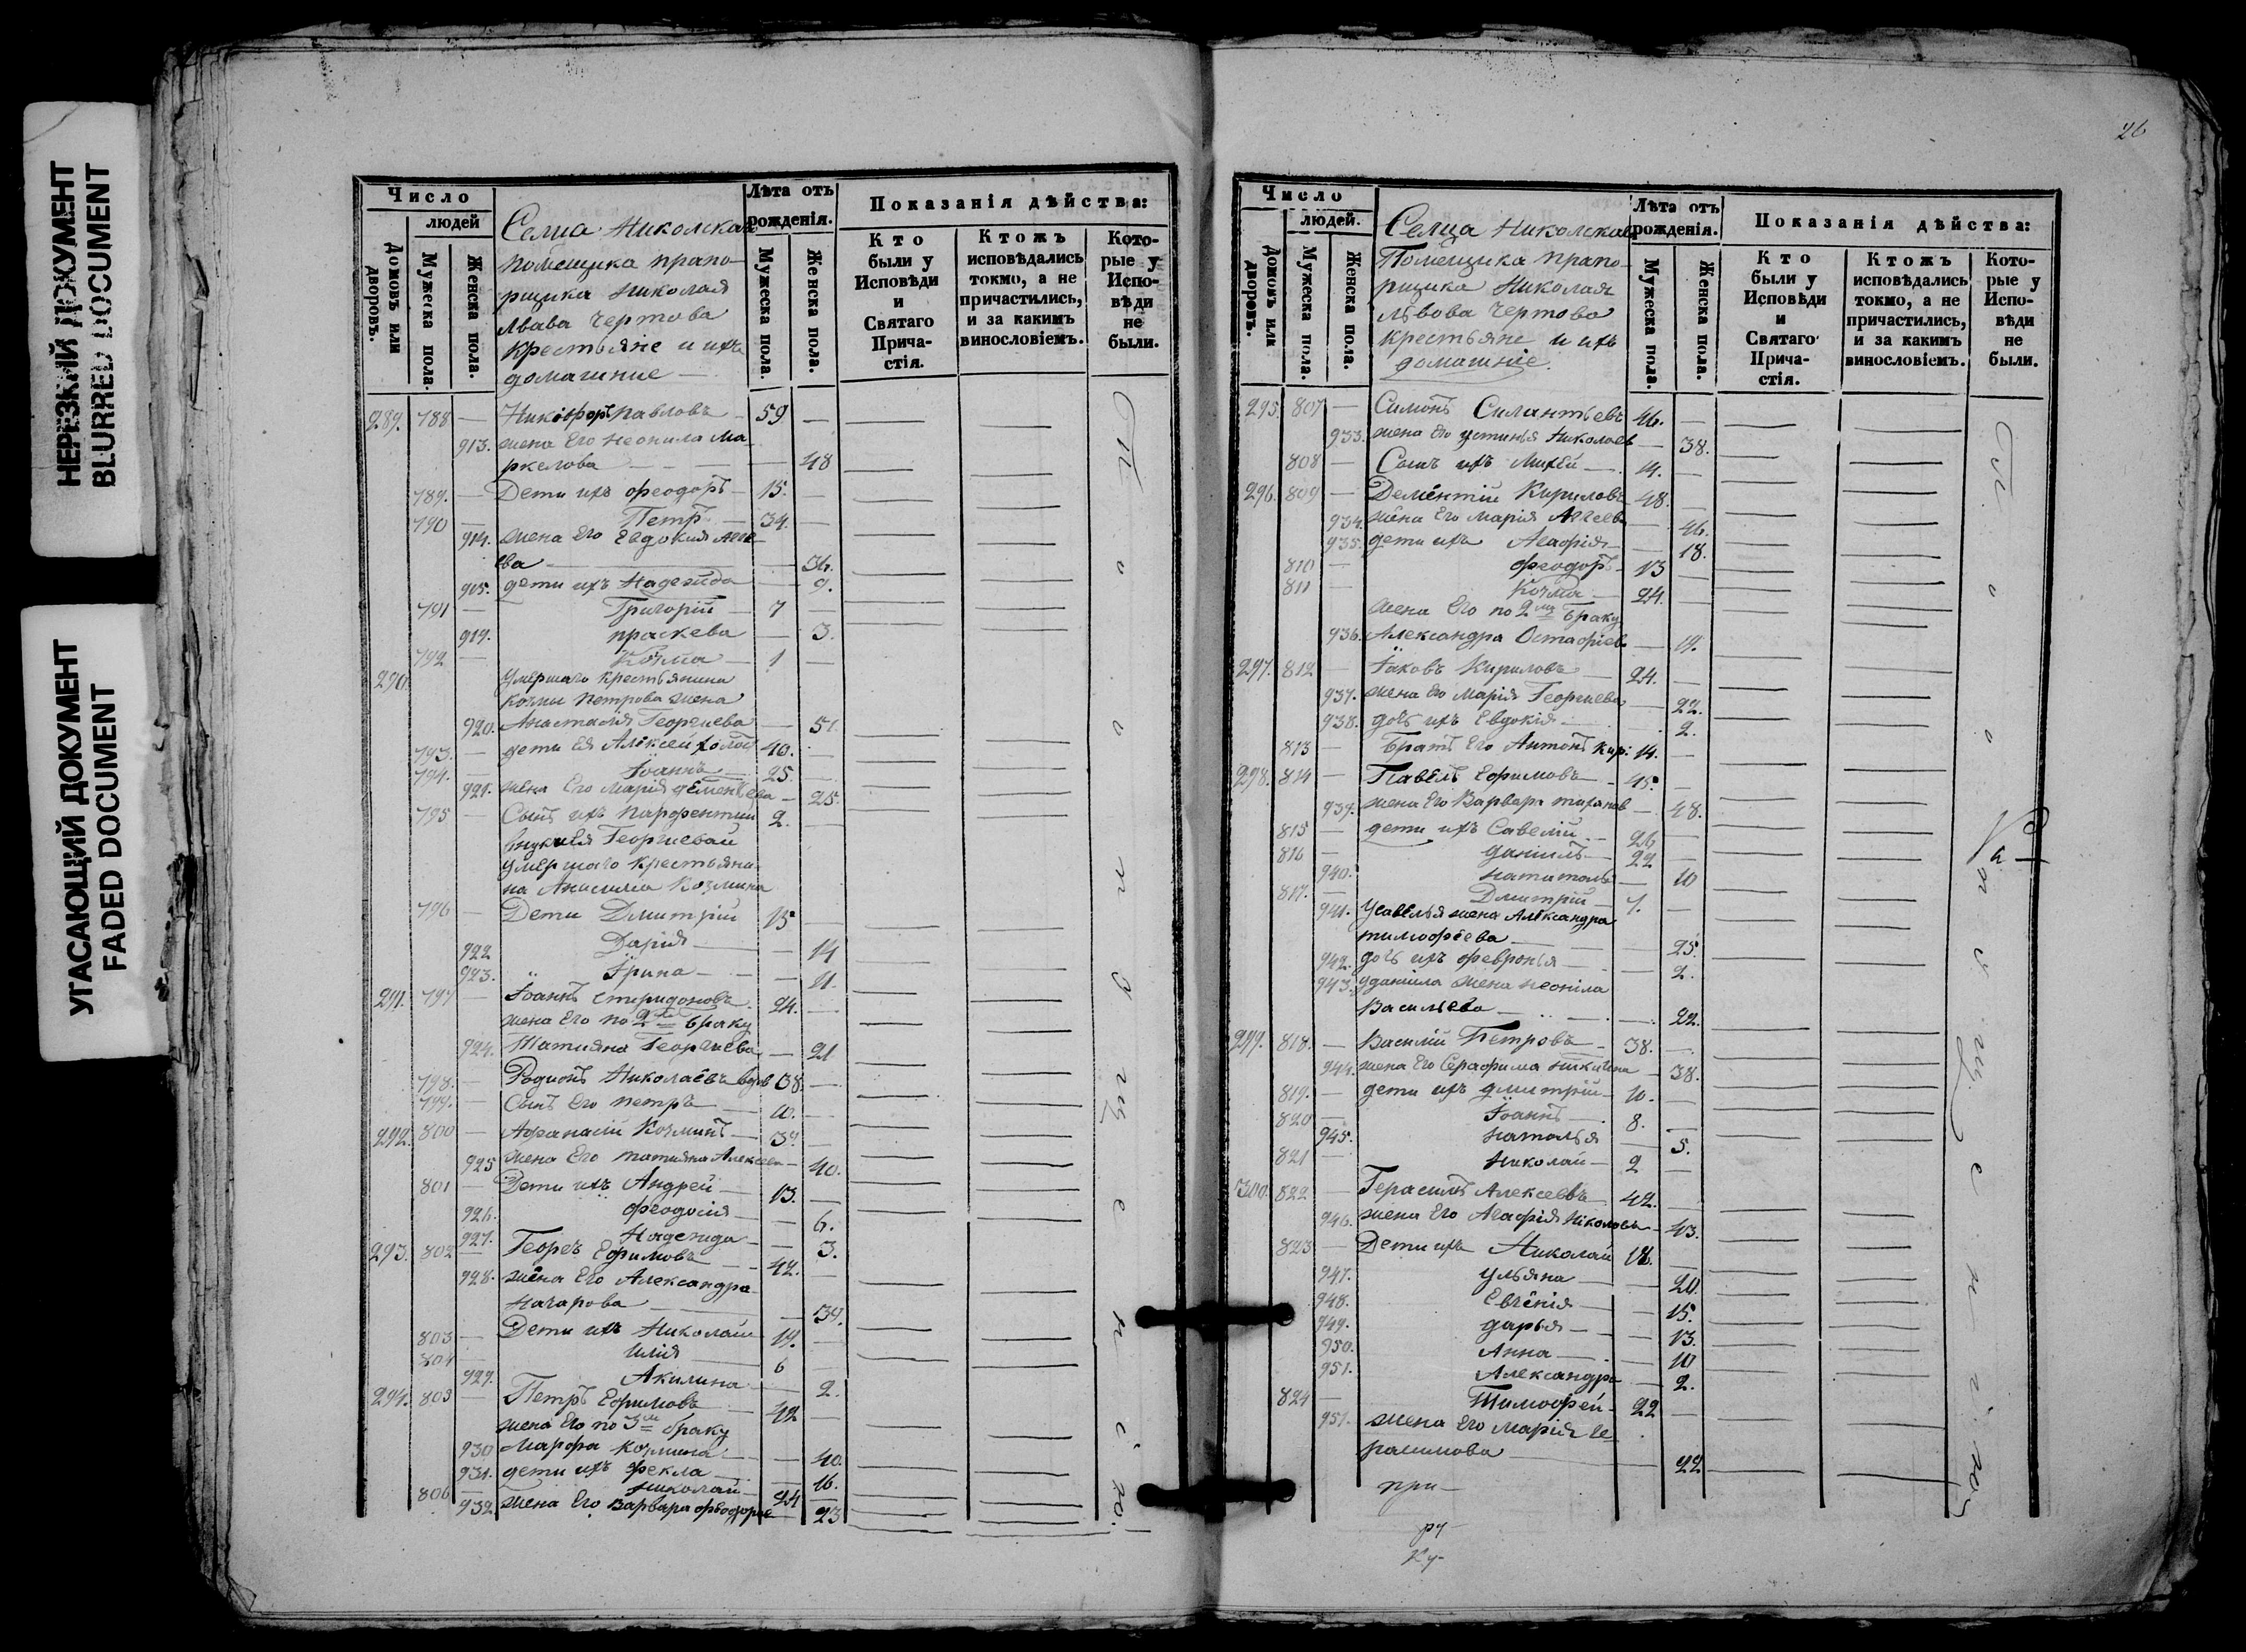 НЕРЕЗКИЙ ДОКУМЕНТ
BLURRED DOCUMENT
УГАСАЮЩИЙ ДОКУМЕНТ
FADED DOCUMENT
Число
людей
Домовъ или дворовъ.
Мужеска пола.
Женска пола.
Селца Николскаго
помещика прапо-
рщика Николая
Лвава Чертова
крестьяне и ихъ
домашние
Лѣта отъ рожденія.
Мужеска пола.
Женска пола.
Показанія дѣйства:
Кто были у Исповѣди и Святаго Прича-стія.
Ктожъ исповѣдались токмо, а не причастились, и за какимъ винословіемъ.
Кото-рые у Испо-вѣди не были.
289. 788 — Никифоръ Павловъ — 59 —
913. жена Его Неонила Ма-
ркелова — 48
789. — Дети ихъ Феодоръ — 15. —
790 — Петръ — 34. —
914. жена Его Евдокия
ева — 36.
915. дети ихъ Надежда — 9.
791 — Григорий — 7 —
919. праскева — 3.
792 — Козма — 1 —
290. Умершаго крестьянина
козмы Петрова жена
920. Анастасия Георгиева — 51.
793. — дети Ея Алексей холост 40. —
794. — Іоаннъ — 25. —
921. жена Его Мария Дементьева — 25.
795 — Сынъ ихъ Парфентий 2. —
внуки Ея Георгиевай
умершаго крестьяни-
на Анисима Козмина
796 — Дети Дмитрий 15 —
922 Дария — 14
923. Ірина — 11.
291. 797 — Іоаннъ Спиридоновъ 24. —
жена Его по 2 браку
924. Татияна Георгиева — 21
798. — Родионъ Николаевъ вдов 38. —
799. — Сынъ Его петръ — 10. —
292. 800 — Афанасий Козминъ — 39. —
925 жена Его татияна Алексеева — 40.
801 — Дети ихъ Андрей — 13. —
926. Феодосия — 6.
927. Надежда — 3.
293. 802 — Георг Ефимовъ — 42. —
928. жена Его Александра
Назарова — 39.
803 — Дети ихъ Николай 14. —
804 — Илия — 6
929. Акилина — 2.
294. 805 — Петръ Ефимовъ — 42 —
жена Его по 3 браку
930 Марфа козмина — 40.
931. дети ихъ Фекла — 16.
806 — Николай — 24 —
932. жена Его Варвара Феодорова — 23
26
Число
людей.
Домовъ или дворовъ.
Мужеска пола.
Женска пола.
Селца Николскаго
Помещика прапо-
рщика Николая
Львова Чертова
крестьяне и ихъ
домашніе.
Лѣта отъ рожденія.
Мужеска пола.
Женска пола.
Показанія дѣйства:
Кто были у Исповѣди и Святаго Прича-стія.
Ктожъ исповѣдались токмо, а не причастились, и за какимъ винословіемъ.
Кото-рые у Испо-вѣди не были.
295. 807 — Симонъ Силантьевъ 46. —
933. жена Его устинья Николаев — 38.
808 — Сынъ ихъ Михей — 14. —
296. 809 — Дементий Кириловъ 48. —
934. жена Его Мария — 46.
935. дети ихъ Агафия — 18.
810 — Феодоръ — 13 —
811 Козма — 24. —
жена Его по 2 браку
936. Александра Остафиев — 19.
297. 812 — Іаковъ Кириловъ — 24. —
937. жена Его Мария Георгиева — 22.
938. дочь ихъ Евдокія — 2.
813 — Братъ Его Антонъ Кир: 14. —
298. 814 — Павелъ Ефимовъ — 45. —
939. жена Его Варвара тиханов — 48.
815 — дети ихъ Савелий — 26 —
816 — Даниилъ — 22 —
940. наталья — 10
817. — Дмитрий — 7. —
941. У Савелья жена Александра
тимофеева — 25.
942. дочь ихъ Февронья — 2.
943. у даниила жена неонила
Васильева — 22.
299. 818. — Василий Петровъ — 38. —
944. жена Его Серафима никитина — 38.
819. — дети ихъ дмитрий — 10. —
820 — Іоаннъ — 8. —
945. наталья — 5.
821 — Николай — 2 —
300. 822 — Герасимъ Алексеевъ — 42. —
946. жена Его Агафія Николова — 43.
823 — Дети ихъ Николай 18. —
947. Ульяна — 20.
948. Евгения — 15.
949. дарья — 13.
950. Анна — 10
951. Александра — 2.
824 — Тимофей — 22 —
951. жена Его Мария Ге-
расимова — 22
при-
ру-
ку-